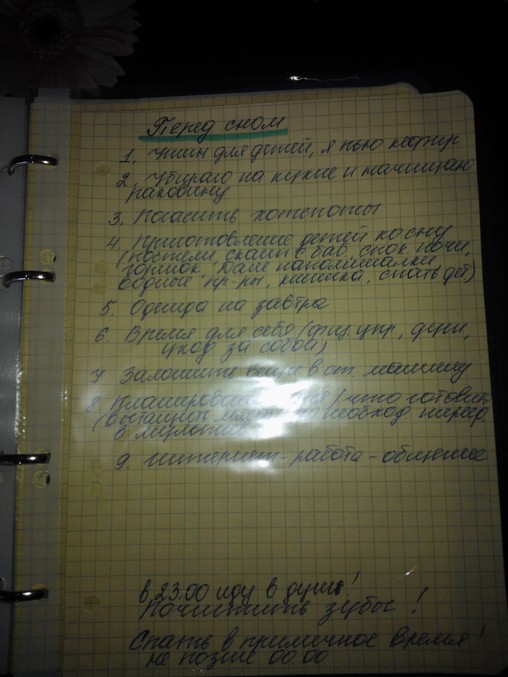 Перед сном
1. Ужин для детей, я пью кефир
2. Убираю на кухне и начищаю
раковину
3. Погасить хотспоты
4. Приготовление детей ко сну
(постели, скайп в бав, спок. ночи,
горшок,
водные пр-ры, книжка, спать дет)
5. Одежда на завтра
6. Время для себя (физ. упр, душ,
уход за собой)
7. Заложить вещи в ст. машину
8. Планирование /что готовить
необход
в
9. интернет-работа-общение
в 23.00 иду в душ!
Почистить зубы!
Спать в приличное время!
не позже 00.00